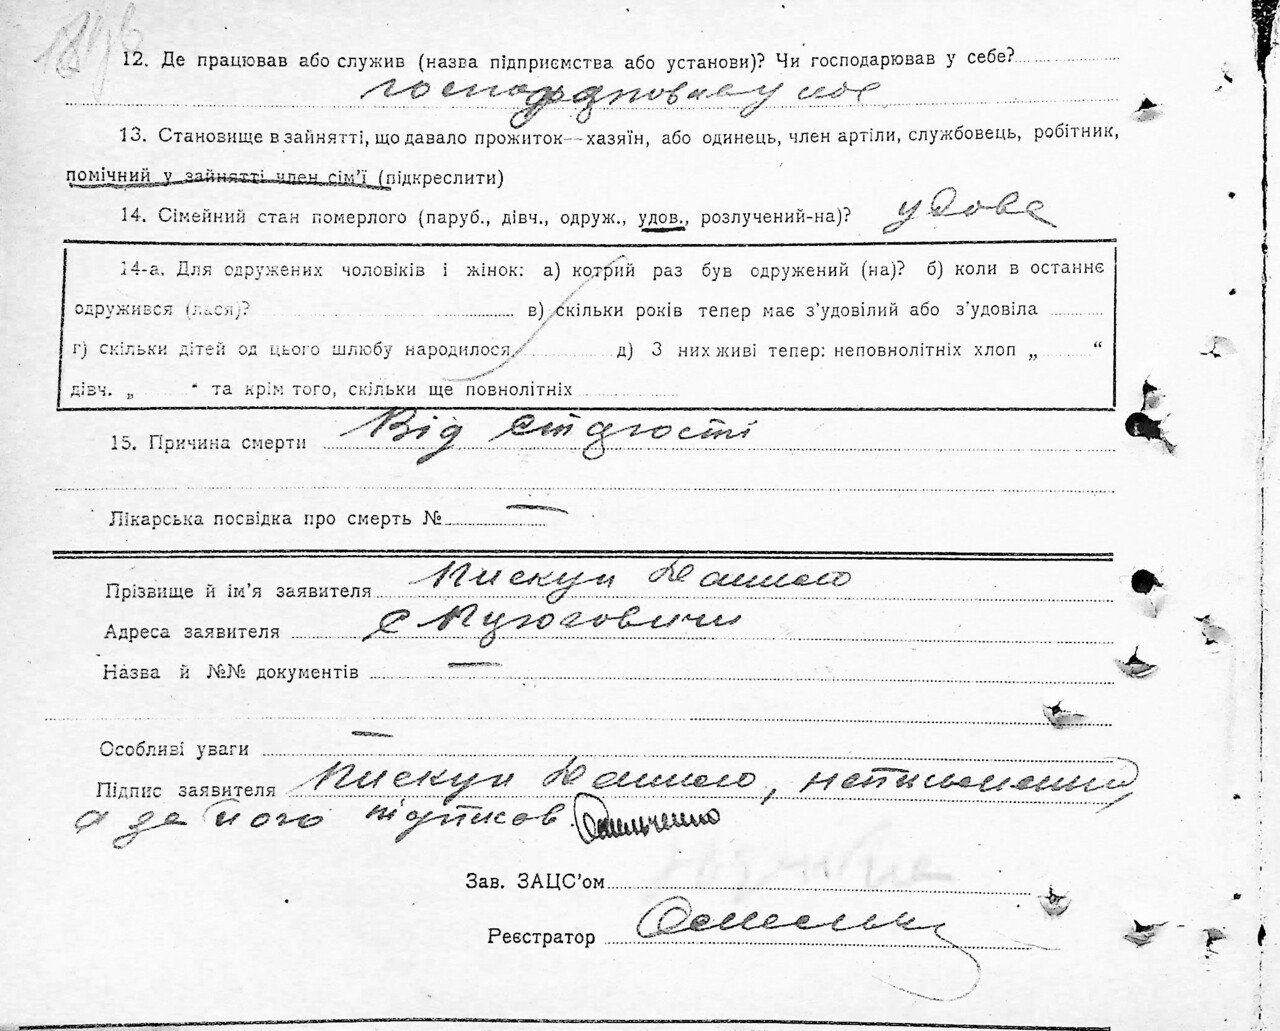 12. Де працював або служив (назва підприємства або установи)? Чи господарював у себе?
13. Становище в зайнятті, що давало прожиток—хазяїн, або одинець, член артіли, службовець, робітник,
помічний у зайнятті член сім'ї (підкреслити)
14. Сімейний стан померлого (паруб., дівч., одруж., удов., розлучений-на)? удова
14-а. Для одружених чоловіків і жінок: а) котрий раз був одружений (на)? б) коли в останнє
одружився (лася)? в) скільки років тепер має з'удовілий або з'удовіла
г) скільки дітей од цього шлюбу народилося, д) З них живі тепер: неповнолітніх хлоп „ “
дівч. „ “ та крім того, скільки ще повнолітніх
15. Причина смерти Від старості
Лікарська посвідка про смерть № —
Прізвище й ім'я заявителя Пискун Данило
Адреса заявителя с
Назва й №№ документів —
Особливі уваги —
Підпис заявителя Пискун Данило, неписьменний,
а за його підписов
Зав. ЗАЦС'ом
Реєстратор